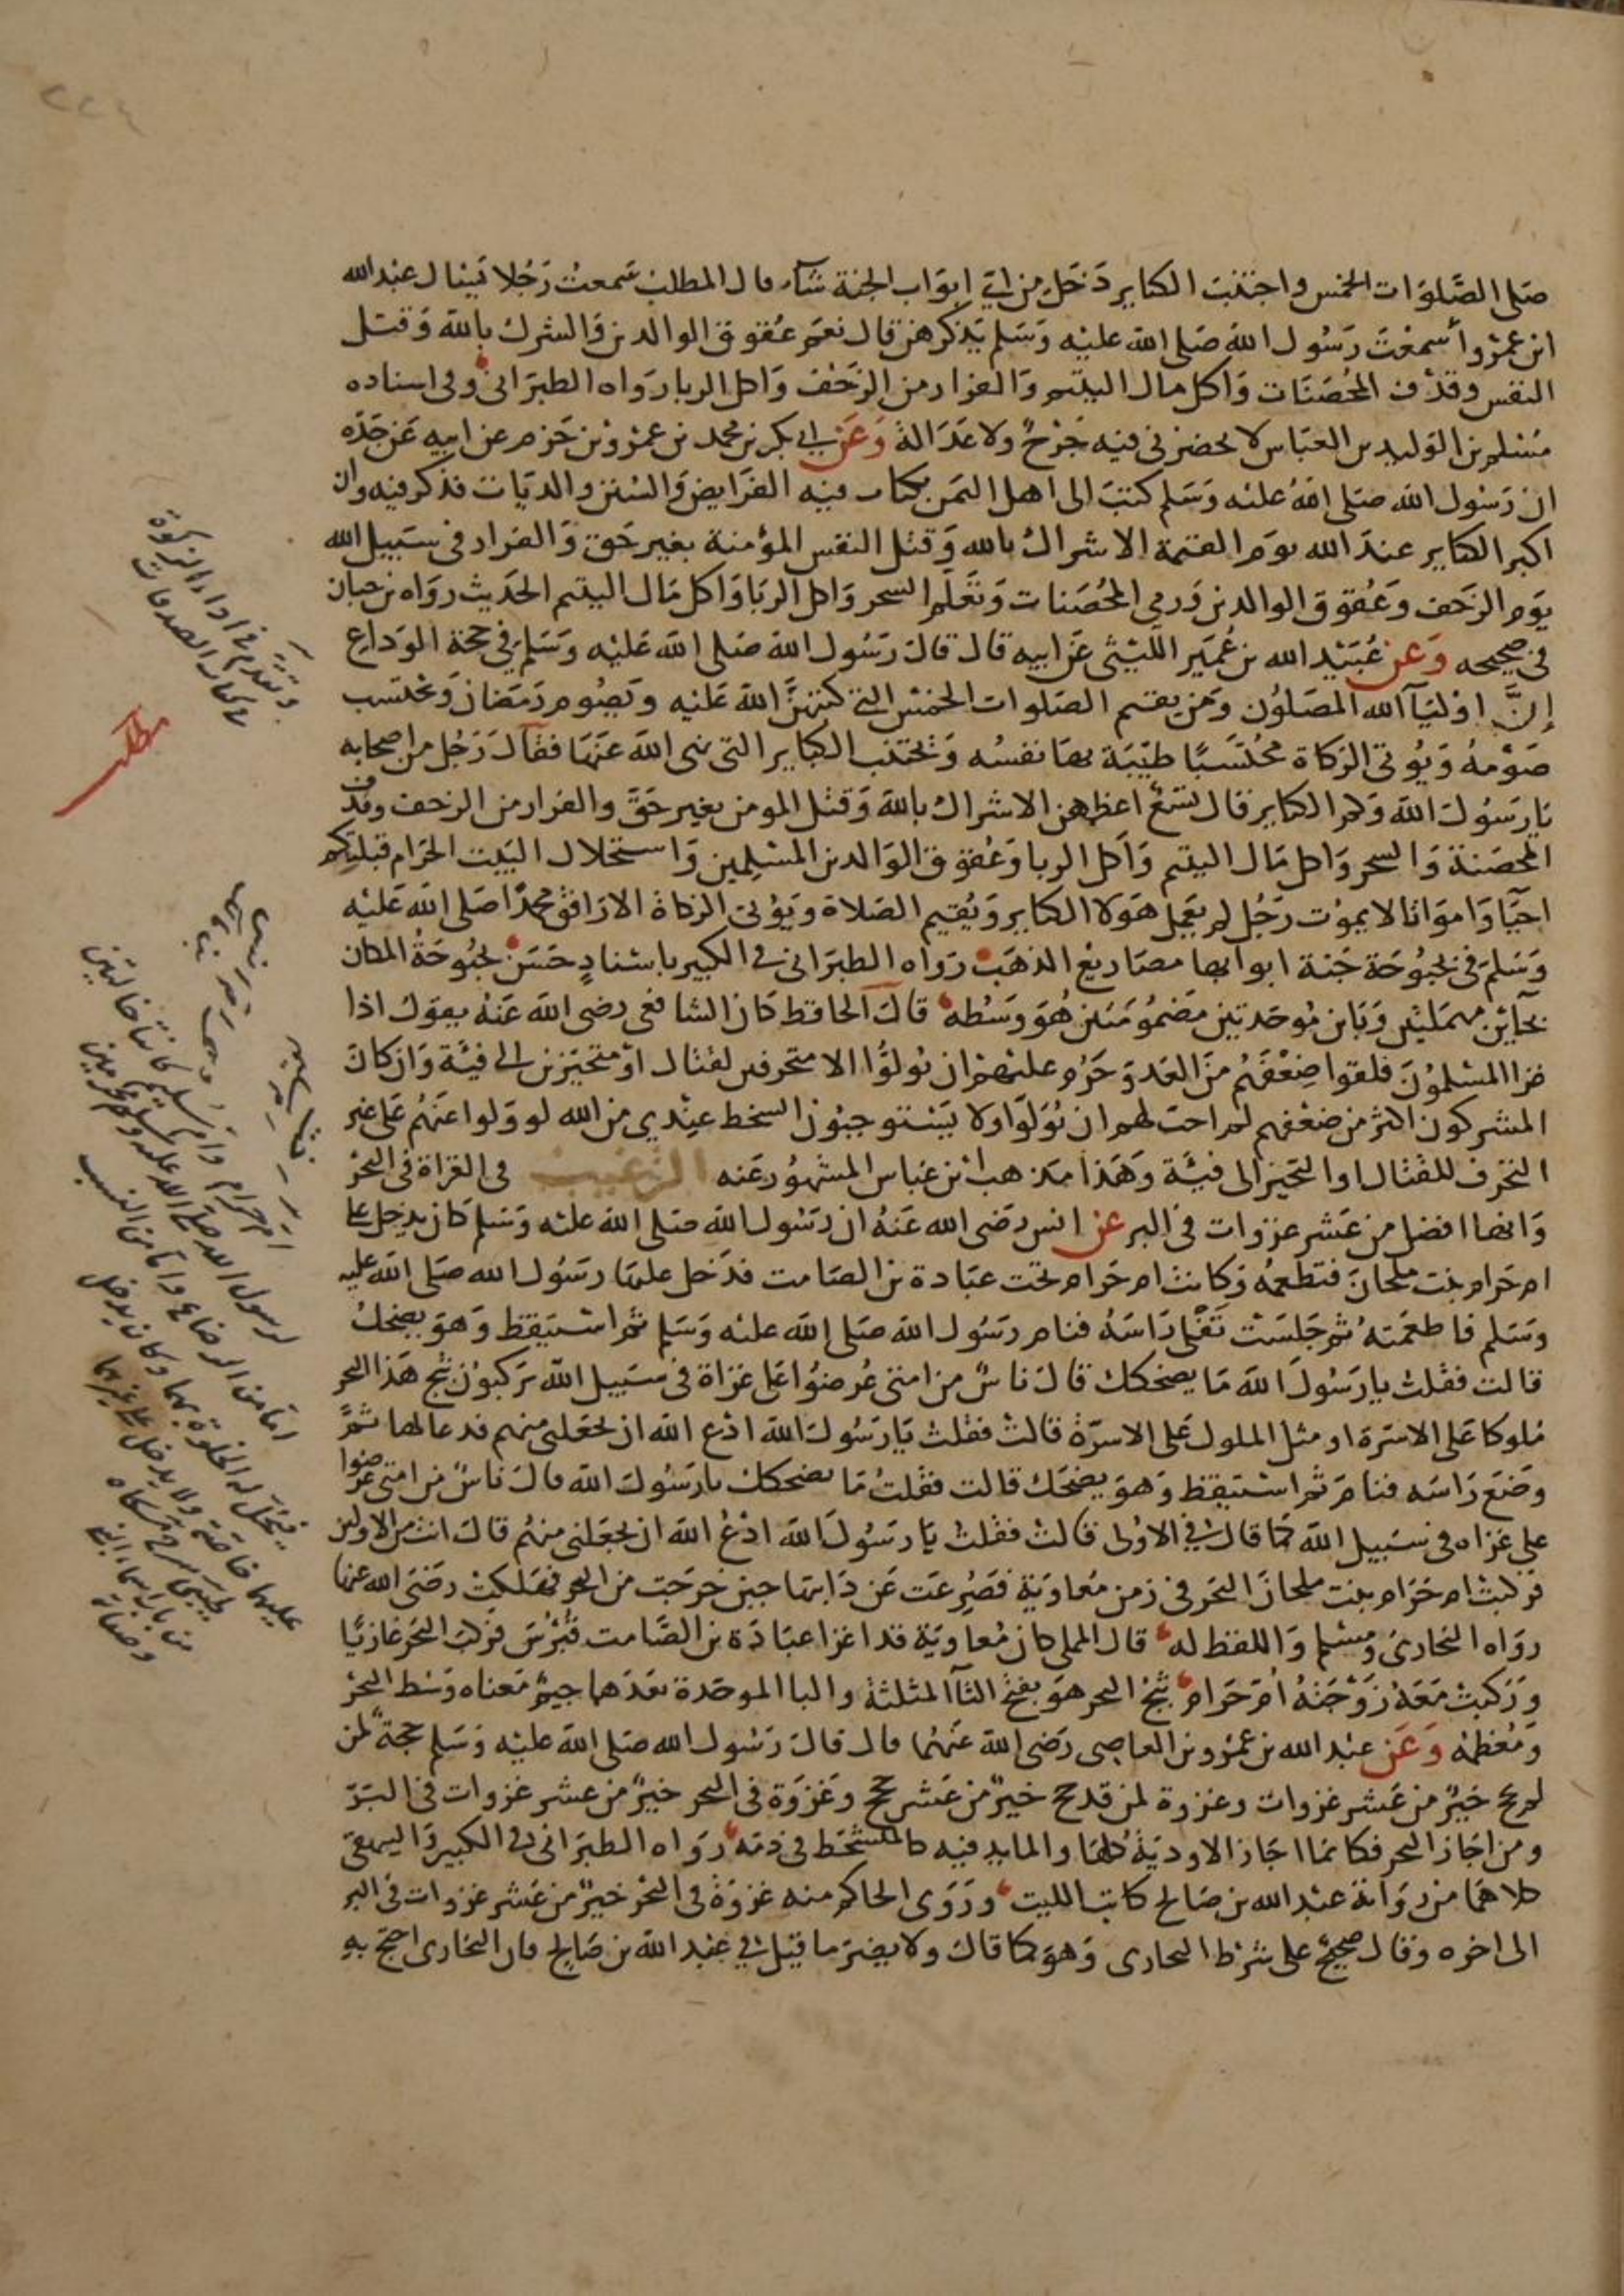 ٢٢٤
صلى الصلوات الخمس واجتنب الكباير دخل من اي ابواب الجنة شاء قال المطلب سمعت رجلا يسال عبد الله
ابن عمرو أسمعت رسول الله صلى الله عليه وسلم يذكرهن قال نعم عقوق الوالدين والشرك بالله وقتل
النفس وقذف المحصنات واكل مال اليتيم والفرار من الزحف واكل الربا رواه الطبراني وفي اسناده
مسلم بن الوليد بن العباس لا يحضرني فيه جرح ولا عدالة وعن ابي بكر بن محمد بن عمرو بن حزم عن ابيه عن جده
ان رسول الله صلى الله عليه وسلم كتب الى اهل اليمن بكتاب فيه الفرايض والسنن والديات فذكر فيه وان
اكبر الكباير عند الله يوم القيمة الاشراك بالله وقتل النفس المؤمنة بغير حق والفرار في سبيل الله
يوم الزحف وعقوق الوالدين ورمي المحصنات وتعلم السحر واكل الربا واكل مال اليتيم الحديث رواه بن حبان
في صحيحه وعن عبيد الله بن عمير الليثي عن ابيه قال قال رسول الله صلى الله عليه وسلم في حجة الوداع
إن اوليآ الله المصلون ومن يقيم الصلوات الخمس التي كتبهن الله عليه ويصوم رمضان ويحتسب
صومه ويوتي الزكاة محتسبا طيبة بها نفسه ويجتنب الكباير التي نهى الله عنها فقال رجل من اصحابه
يا رسول الله وكم الكباير قال تسع اعظمهن الاشراك بالله وقتل المومن بغير حق والفرار من الزحف وقذف
المحصنة والسحر واكل مال اليتيم واكل الربا وعقوق الوالدين المسلمين واستحلال البيت الحرام قبلتكم
احيا وامواتا لا يموت رجل لم يعمل هولا الكباير ويقيم الصلاة ويؤتي الزكاة الا رافق محمدا صلى الله عليه
وسلم في بحبوحة جنة ابوابها مصاريع الذهب رواه الطبراني في الكبير باسناد حسن بحبوحة المكان
بحآئين مهملتين وبابن موحدتين مضمومتين هو وسطه قال الحافظ كان الشافعي رضي الله عنه يقول اذا
غزا المسلمون فلقوا ضعفهم من العدو حرم عليهم ان يولوا الا متحرفين لقتال او متحيزين الى فيئة وان كان
المشركون اكثر من ضعفهم لم احب لهم ان يولوا ولا يستوجبون السخط عندي من الله لو ولوا عنهم على غير
التحرف للقتال او التحيز الى فيئة وهذا مذهب ابن عباس المشهور عنه الترغيب في الغزاة في البحر
وانها افضل من عشر غزوات في البر عن انس رضي الله عنه ان رسول الله صلى الله عليه وسلم كان يدخل على
ام حرام بنت ملحان فتطعمه وكانت ام حرام تحت عبادة بن الصامت فدخل عليها رسول الله صلى الله عليه
وسلم فاطعمته ثم جلست تفلي راسه فنام رسول الله صلى الله عليه وسلم ثم استيقظ وهو يضحك
قالت فقلت يا رسول الله ما يضحكك قال ناس من امتي عرضوا على غزاة في سبيل الله يركبون ثبج هذا البحر
ملوكا على الاسرة او مثل الملوك على الاسرة قالت فقلت يا رسول الله ادع الله ان يجعلني منهم فدعا لها ثم
وضع راسه فنام ثم استيقظ وهو يضحك قالت فقلت ما يضحكك يا رسول الله قال ناس من امتي عرضوا
علي غزاه في سبيل الله كما قال في الاولى قالت فقلت يا رسول الله ادع الله ان يجعلني منهم قال انت من الاولين
فركبت ام حرام بنت ملحان البحر في زمن معاوية فصرعت عن دابتها حين خرجت من البحر فهلكت رضي الله عنها
رواه البخاري ومسلم واللفظ له قال المملي كان معاوية قد اغزا عبادة بن الصامت قبرس فركب البحر غازيا
وركبت معه زوجته ام حرام ثبج البحر هو بفتح الثآ المثلثة والبا الموحدة بعدهما جيم معناه وسط البحر
ومعظمه وعن عبد الله بن عمرو بن العاصي رضي الله عنهما قال قال رسول الله صلى الله عليه وسلم حجة لمن
لم يحج خير من عشر غزوات وغزوة لمن قد حج خير من عشر حجج وغزوة في البحر خير من عشر غزوات في البر
ومن اجاز البحر فكانما اجاز الاودية كلها والمايد فيه كالمتشحط في دمه رواه الطبراني في الكبير والبيهقي
كلاهما من رواية عبد الله بن صالح كاتب الليث وروى الحاكم منه غزوة في البحر خير من عشر غزوات في البر
الى اخره وقال صحيح على شرط البخاري وهو كما قال ولا يضر ما قيل في عبد الله بن صالح فان البخاري احتج به
وتقدم في اداء الزكوة
مطلب
ام حرام وام سليم كانتا خالتين
لرسول الله صلى الله عليه وسلم محرمين
اما من الرضاع واما من النسب
فيحل له الخلوة بهما وكان يدخل
عليهما خاصة ولا يدخل على غيرهما